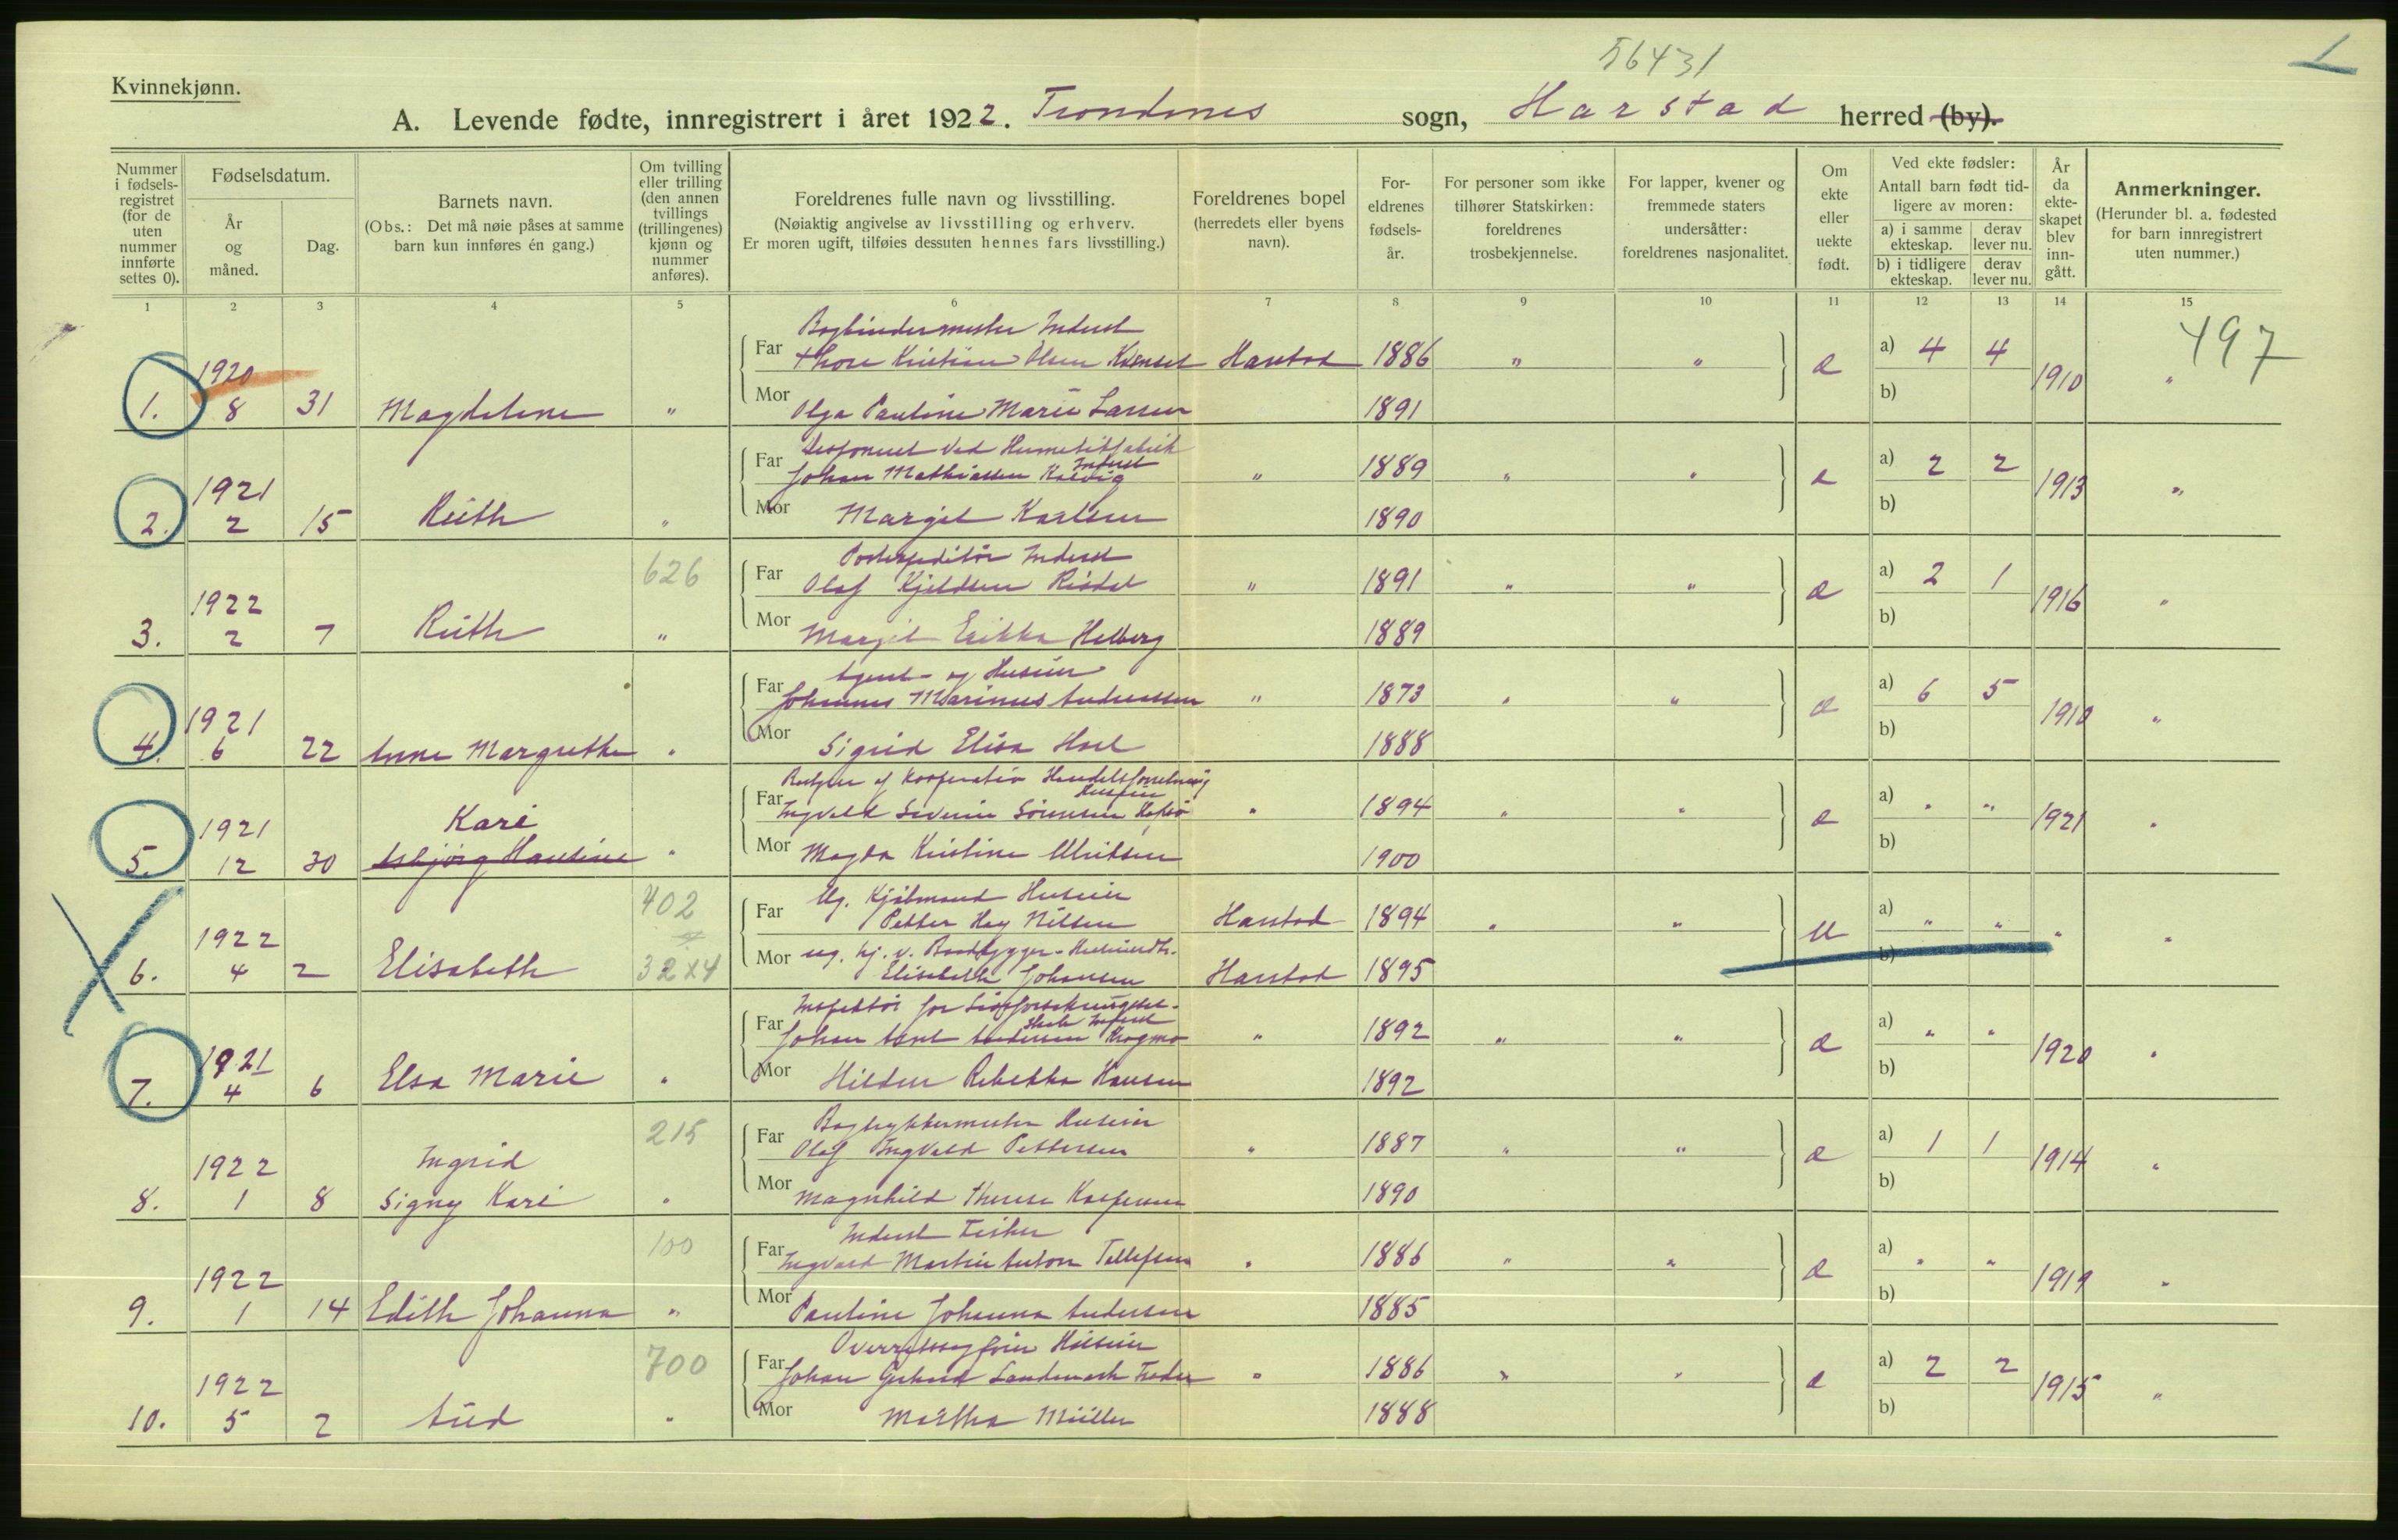 56431
Kvinnekjønn.
A. Levende fødte, innregistrert i året 1922. Trondenes sogn, Harstad herred (by).
Nummer i fødsels-registret (for de uten nummer innførte settes 0).
Fødselsdatum.
År og måned.
Dag.
Barnets navn.
(Obs.: Det må nøie påses at samme barn kun innføres én gang.)
Om tvilling eller trilling (den annen tvillings (trillingenes) kjønn og nummer anføres).
Foreldrenes fulle navn og livsstilling.
(Nøiaktig angivelse av livsstilling og erhverv.
Er moren ugift, tilføies dessuten hennes fars livsstilling.)
Foreldrenes bopel (herredets eller byens navn).
For-eldrenes fødsels-år.
For personer som ikke tilhører Statskirken: foreldrenes trosbekjennelse.
For lapper, kvener og fremmede staters undersåtter: foreldrenes nasjonalitet.
Om ekte eller uekte født.
Ved ekte fødsler:
Antall barn født tid-ligere av moren:
a) i samme ekteskap. derav lever nu.
b) i tidligere ekteskap. derav lever nu.
År da ekte-skapet blev inn-gått.
Anmerkninger.
(Herunder bl. a. fødested for barn innregistrert uten nummer.)
1 2 3 4 5 6 7 8 9 10 11 12 13 14 15
497
Bogbindermester Inderst
1920 Far Thore Kristian Olsen Harstad 1886 " " a) 4 4
1. 8 31 Magdelene " Mor Olga Pauline Marie Larsen 1891 e b) 1910 "
Disponent ved Hermetikfabrik Inderst
1921 Far Johan Mathiassen Kalvig " 1889 " " a) 2 2
2. 2 15 Ruth " Mor Margit Karlsen 1890 e b) 1913 "
626 Postexpeditør Inderst
1922 Far Olaf Kjeldsen " 1891 " " a) 2 1
3. 2 7 Ruth " Mor Margit Erikka Helberg 1889 e b) 1916 "
Agent og Huseier
1921 Far Johannes Marinus Andreassen " 1873 " " a) 6 5
4. 6 22 Anne Margrethe " Mor Sigrid Elisa Hoel 1888 e b) 1910 "
Bestyrer af Kooperativ Handelsforretning Huseier
1921 Kari Far Ingvald Severin Sørensen " 1894 " " a) " "
5. 12 30 Asbjørg Hansine " Mor Magda Kristine Ulriksen 1900 e b) 1921 "
402 Ug. Kjøbmand Huseier
1922 Far Petter Hag Nilsen Harstad 1894 " " a) " "
Mor ug. hj. v. Baadbygger
6. 4 2 Elisabeth 32x4 Elisabeth Johansen Harstad 1895 u b) " "
Inspektør for
1921 Far Johan Arnt Andersen Krogmo " 1892 " " a) " "
7. 4 6 Elsa Marie " Mor Hildur Rebekka Hansen 1892 e b) 1920 "
215 Bogtrykkermester Huseier
1922 Ingrid Far Olaf Ingvald Pettersen " 1887 " " a) 1 1
8. 1 8 Signy Kari " Mor Magnhild Therese Kaspersen 1890 e b) 1914 "
100 Inderst Fisker
1922 Far Ingvard Martin Anton Tellefsen " 1886 " " a) " "
9. 1 14 Edith Johanna " Mor Pauline Johanna Andersen 1885 e b) 1919 "
700 Overretssagfører Huseier
1922 Far Johan Gerhard Landmark " 1886 " " a) 2 2
10. 5 2 Aud " Mor Martha Müller 1888 e b) 1915 "